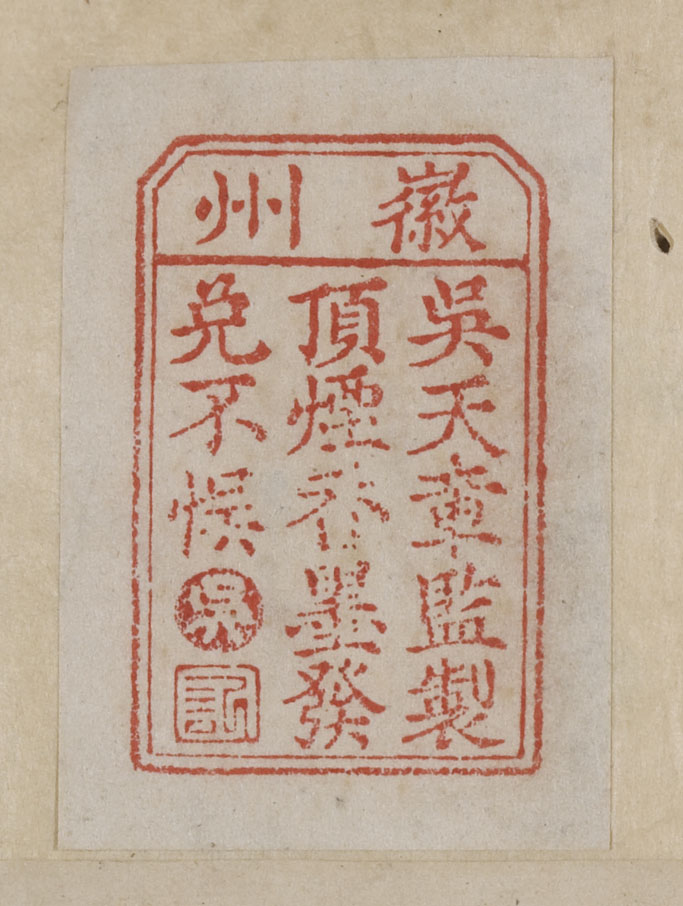 徽州
吳天章監製
頂煙香墨發
兌不悮
吳
記